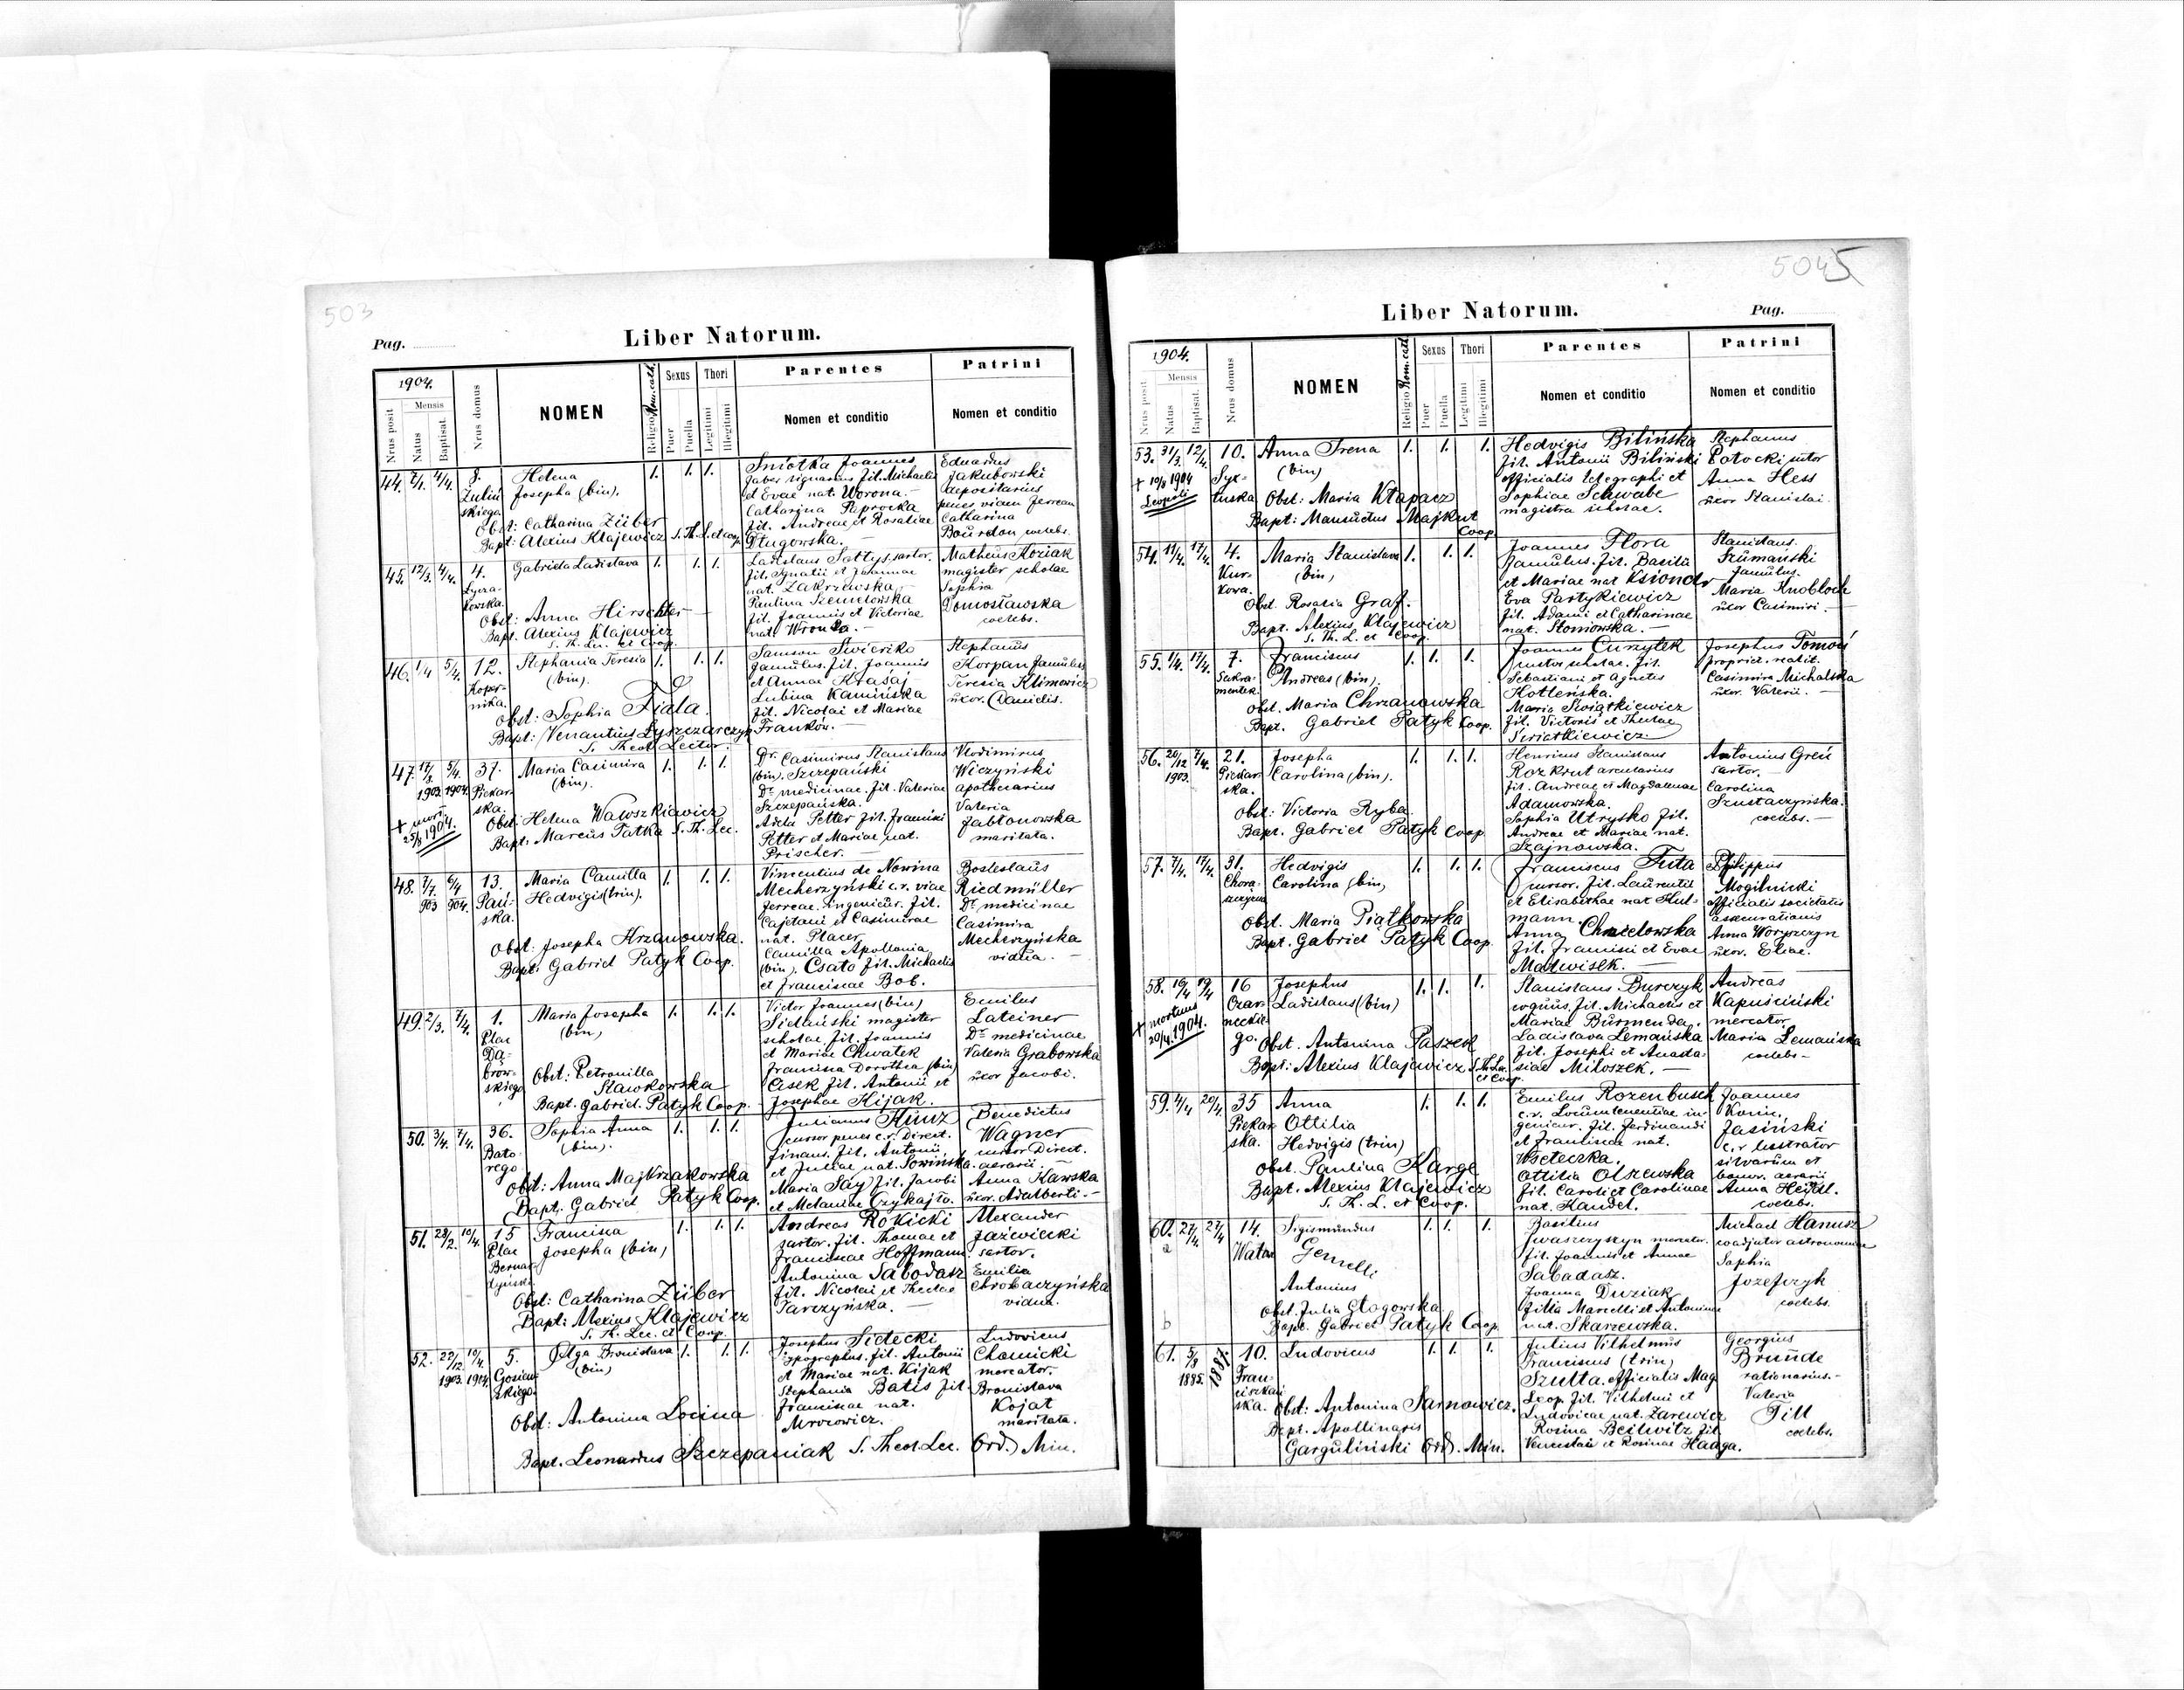 503
Pag.
Liber Natorum.
1904.
Mensis
Nrus posit
Natus
Baptisat.
Nrus domus
NOMEN
Religio Rom. cath.
Sexus
Puer
Puella
Thori
Legitimi
Illegitimi
Parentes
Nomen et conditio
Patrini
Nomen et conditio
44. 4/4. 8. Helena 1. 1. 1.
Josepha (bin).
Obst: Catharina Züber
Bapt: Alexius Klajewicz S. Th. L. et coop.
Joannes
faber lignarius fil. Michaelis
et Evae nat. Worona.
Catharina Paprocka
fil. Andreae et Rosaliae
Długowska.
Eduardus
Jakubowski
depositarius
penes viam ferream
Catharina
Bourdon coelebs.
45. 12/3. 4/4. 4. Gabriela Ladislava 1. 1. 1.
Łycza-
kowska.
Obst: Anna Hirschler
Bapt. Alexius Klajewicz
S. Th. Lec. et Coop.
Ladislaus Sattys, sartor.
fil. Ignatii et Joannae
nat. Zakrzewska
Paulina Szemelowska
fil. Joannis et Victoriae
nat. Wronka.
Matheus Koziak
magister scholae
Sophia
Domosławska
coelebs.
46. 1/4 5/4. 12. Stephania Teresia 1. 1. 1.
Koper-
nika.
(bin).
Obst: Sophia Fiala.
Bapt: Venantius Łyszczarczyk
S. Theol. Lector.
Samson Świeriko
famulus. fil. Joannis
et Annae Krasaj
Lubina Kamińska
fil. Nicolai et Mariae
Franków.
Stephanus
Korpan famulus
Teresia Klimowicz
uxor. Danielis.
47. 17/8. 1903. 5/4. 1904. 37. Maria Casimira 1. 1. 1.
Piekar-
ska.
(bin).
+ mort.
25/8 1904.
Obst: Helena Wawszkiewicz
Bapt: Marcus Patka S. Th. Lec.
Dr. Casimirus Stanislaus
(bin). Szczepański
Dr. medicinae. fil. Valeriae
Szczepańska.
Adela Petter fil. Francisci
Petter et Mariae nat.
Prischer.
Vlodimirus
Wiczyński
apothecarius
Valeria
Jabłonowska
maritata.
48. 7/7. 903 6/4 904. 13. Maria Camilla 1. 1. 1.
Pań-
ska.
Hedvigis (trin).
Obst: Josepha Krzanowska.
Bapt: Gabriel Patyk Coop.
Vincentius de Nowina
Mecherzyński c.r. viae
ferreae. ingenieur. fil.
Cajetani et Casimirae
nat. Placer
Camilla Apollonia
(bin). Csato fil. Michaelis
et Franciscae Bob.
Bosleslaus
Riedmüller
Dr. medicinae
Casimira
Mecherzyńska
vidua.
49. 2/3. 7/4. 1. Maria Josepha 1. 1. 1.
Plac
Dą-
brow-
skiego
(bin)
Obst: Petronilla
Sławkowska
Bapt. Gabriel. Patyk Coop.
Victor Joannes (bin)
Sidański magister
scholae. fil. Joannis
et Mariae Chwatek
Francisca Dorothea (bin)
Cisek fil. Antonii et
Josephae Kijak.
Emilus
Lateiner
Dr. medicinae
Valeria Grabowska
uxor Jacobi.
50. 3/4. 7/4. 36. Sophia Anna 1. 1. 1.
Bato-
rego
(bin).
Obst: Anna Majkrzakowska
Bapt. Gabriel Patyk Coop.
Julianus Kunz
cursor penes c.r. Direct.
finans. fil. Antonii
et Juliae nat. Sowińska.
Maria Say fil. Jacobi
et Melaniae Czykajło.
Benedictus
Wagner
cursor Direct.
aerarii.
Anna Kawska
uxor. Adalberti.
51. 28/2. 10/4. 15 Francisca 1. 1. 1.
Plac
Bernar-
dyński.
Josepha (bin)
Obst: Catharina Züber
Bapt: Alexius Klajewicz
S. Th. Lec. et Coop.
Andreas Rokicki
sartor. fil. Thomae et
Franciscae Hoffmann.
Antonina Sabodasz
fil. Nicolai et Theclae
Tarczyńska.
Alexander
Jaźwiecki
sartor.
Emilia
Chrobaczyńska
vidua.
52. 22/12. 1903. 10/4. 1904. 5. Olga Bronislava 1. 1. 1.
Gosiew-
skiego.
(bin)
Obst: Antonina Locina
Bapt. Leonardus Szczepaniak S. Theol. Lec. Ord. Min.
Josephus Sidecki
typographus. fil. Antonii
et Mariae nat. Kijak
Stephania Batis fil.
Franciscae nat.
Mrocowicz.
Ludovicus
Chamicki
mercator.
Bronislava
Kojat
maritata.
5045
Liber Natorum.
Pag.
1904.
Mensis
Nrus posit
Natus
Baptisat.
Nrus domus
NOMEN
Religio Rom. cath.
Sexus
Puer
Puella
Thori
Legitimi
Illegitimi
Parentes
Nomen et conditio
Patrini
Nomen et conditio
53. 31/3. 12/4. 10. Anna Irena 1. 1. 1.
+ 10/8 1904
Leopoli
Syx-
tuska
(bin)
Obst: Maria Kłapacz
Bapt: Mansuetus Majkut
Coop.
Hedvigis Bilińska
fil. Antonii Biliński
officialis telegraphi et
Sophiae Schwabe
magistra scholae.
Stephanus
Potocki sutor
Anna Hess
uxor Stanislai.
54. 11/4. 17/4. 4. Maria Stanislava 1. 1. 1.
Kur-
kowa.
(bin)
Obst. Rosalia Graf.
Bapt. Alexius Klajewicz
S. Th. L. et Coop.
Joannes Flora
famulus. fil. Basilii
et Mariae nat Ksiondz
Eva Partykiewicz
fil. Adami et Catharinae
nat. Słoniowska.
Stanislaus.
Szumański
famulus.
Maria Knobloch
uxor Casimiri.
55. 1/4. 17/4. 7. Franciscus 1. 1. 1.
Sakra-
mentek
Andreas (bin).
Obst. Maria Chrzanowska
Bapt. Gabriel Patyk Coop.
Joannes Curzytek
custos scholae. fil.
Sebastiani et Agnetis
Kotleńska.
Maria Swiątkiewicz
fil. Victoris et Theclae
Swiatkiewicz.
Josephus Tomoń
propriet. realit.
Casimira Michalska
uxor. Valerii.
56. 20/12 1903. 7/4. 21. Josepha 1. 1. 1.
Piekar-
ska.
Carolina (bin).
Obst: Victoria Ryba
Bapt. Gabriel Patyk Coop.
Henricus Stanislaus
Rozkrut arcularius
fil. Andreae et Magdalenae
Adamowska.
Sophia Utrysko fil.
Andreae et Mariae nat.
Szajnowska.
Antonius Greń
sartor.
Carolina
Szustaczyńska.
coelebs.
57. 7/4. 17/4. 31. Hedvigis 1. 1. 1.
Chorą-
Carolina (bin)
Obst. Maria Piątkowska
Bapt. Gabriel Patyk Coop.
Franciscus Futa
cursor. fil. Laurentii
et Elisabethae nat Kul-
mann.
Anna Chmielowska
fil. Francisci et Evae
Matwisek.
Philippus
Mogilnicki
officialis societatis
assecurationis
Anna Woryszczyn
uxor. Eliae.
58. 19/4 19/4 16 Josephus 1. 1. 1.
+ mortuus
20/4. 1904.
Czar-
neckie-
go.
Ladislaus (bin)
Obst. Antonina Paszek
Bapt: Alexius Klajewicz S. Th. Lec.
et Coop.
Stanislaus Burczyk
coquus. fil. Michaelis et
Mariae Burmenda.
Ladislava Lemańska
fil. Josephi et Anasta-
siae Miłoszek.
Andreas
Kapuściński
mercator
Maria Lemańska
coelebs
59. 4/4 20/4. 35 Anna 1. 1. 1.
Piekar-
ska.
Ottilia
Hedvigis (trin)
Obst. Paulina Karge
Bapt. Alexius Klajewicz
S. Th. L. et Coop.
Emilus Rozenbusch
c.r. Locumtenentiae in-
genieur. fil. Ferdinandi
et Franciscae nat.
Wseteczka.
Ottilia Olszewska
fil. Caroli et Carolinae
nat. Handel.
Joannes
Konin.
Jasiński
c.r. lustrator
silvarum et
bonor. aerarii
Anna Heydl.
coelebs.
60. 27/4. 27/4 14. Sigismundus 1. 1. 1.
a
Watow
Gemelli
Antonius
Obst. Julia Głogowska
b
Bapt. Gabriel Patyk Coop.
Basilius
Iwaszczyszyn mercator.
fil. Joannis et Annae
Sabadasz.
Joanna Duziak
filia Marcelli et Antoninae
nat. Skarzewska.
Michael Hanusz
coadjutor astronomiae
Sophia
Jozefczyk
coelebs.
61. 5/8 1885. 1887. 10. Ludovicus 1. 1. 1.
Fran-
ciszkań-
ska.
Obst: Antonina Sarnowicz.
Bapt. Apollinaris
Garguliński Ord. Min.
Julius Vilhelmus
Franciscus (trin)
Szulta. officialis Mag.
Leop. fil. Vilhelmi et
Ludovicae nat. Zarewicz
Rosina Beitwitz fil.
Venceslai et Rosinae Haaga.
Georgius
Brunde
rationarius.
Valeria
Till
coelebs.